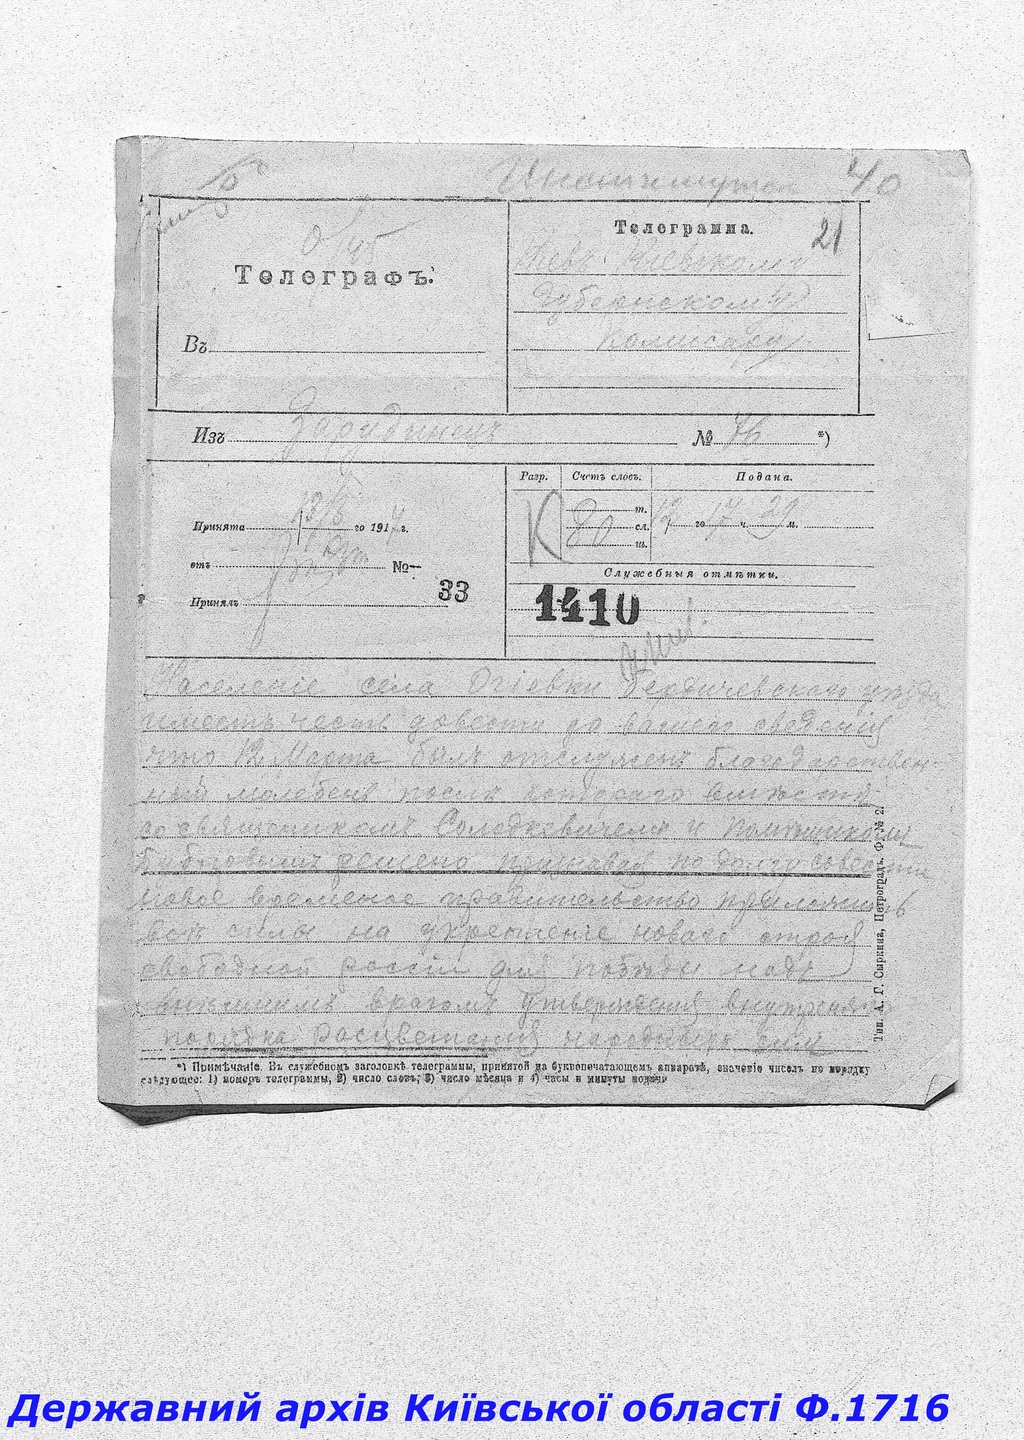 40
Телеграфъ.
Въ
Телеграмма.
21
Киевъ Киевскому
Губернскому
Комисару
Изъ Зарудинецъ № 76 *)
Принята 13/3 го 1917 г.
отъ №
Принялъ
33
Разр. Счетъ словъ. Подана.
К 80 т. сл. ш. го 17 ч. 29 м.
Служебныя отмѣтки.
1410
Населеніе села Огіевки Бердичевскаго уѣзда
имеетъ честь довести до вашего сведенія
что 12 Марта былъ отслуженъ благодарствен-
ный молебенъ после котораго вместе
со священикомъ Солодкевичемъ и помѣщикомъ
решено признавая по долгу совести
новое временое правительство приложить
все силы на укрепленіе новаго строя
свободной россіи для победы надъ
внешнимъ врагомъ утвержденія внутреняго
порядка расцветанія народныхъ силъ
*) Примѣчаніе. Въ служебномъ заголовкѣ телеграммы, принятой на буквопечатающемъ аппаратѣ, значеніе чиселъ по порядку
слѣдующее: 1) номеръ телеграммы, 2) число словъ, 3) число мѣсяца и 4) часы и минуты подачи
Тип. А. Г. Сыркина, Петроградъ. Ф. № 2.
Державний архів Київської області Ф.1716